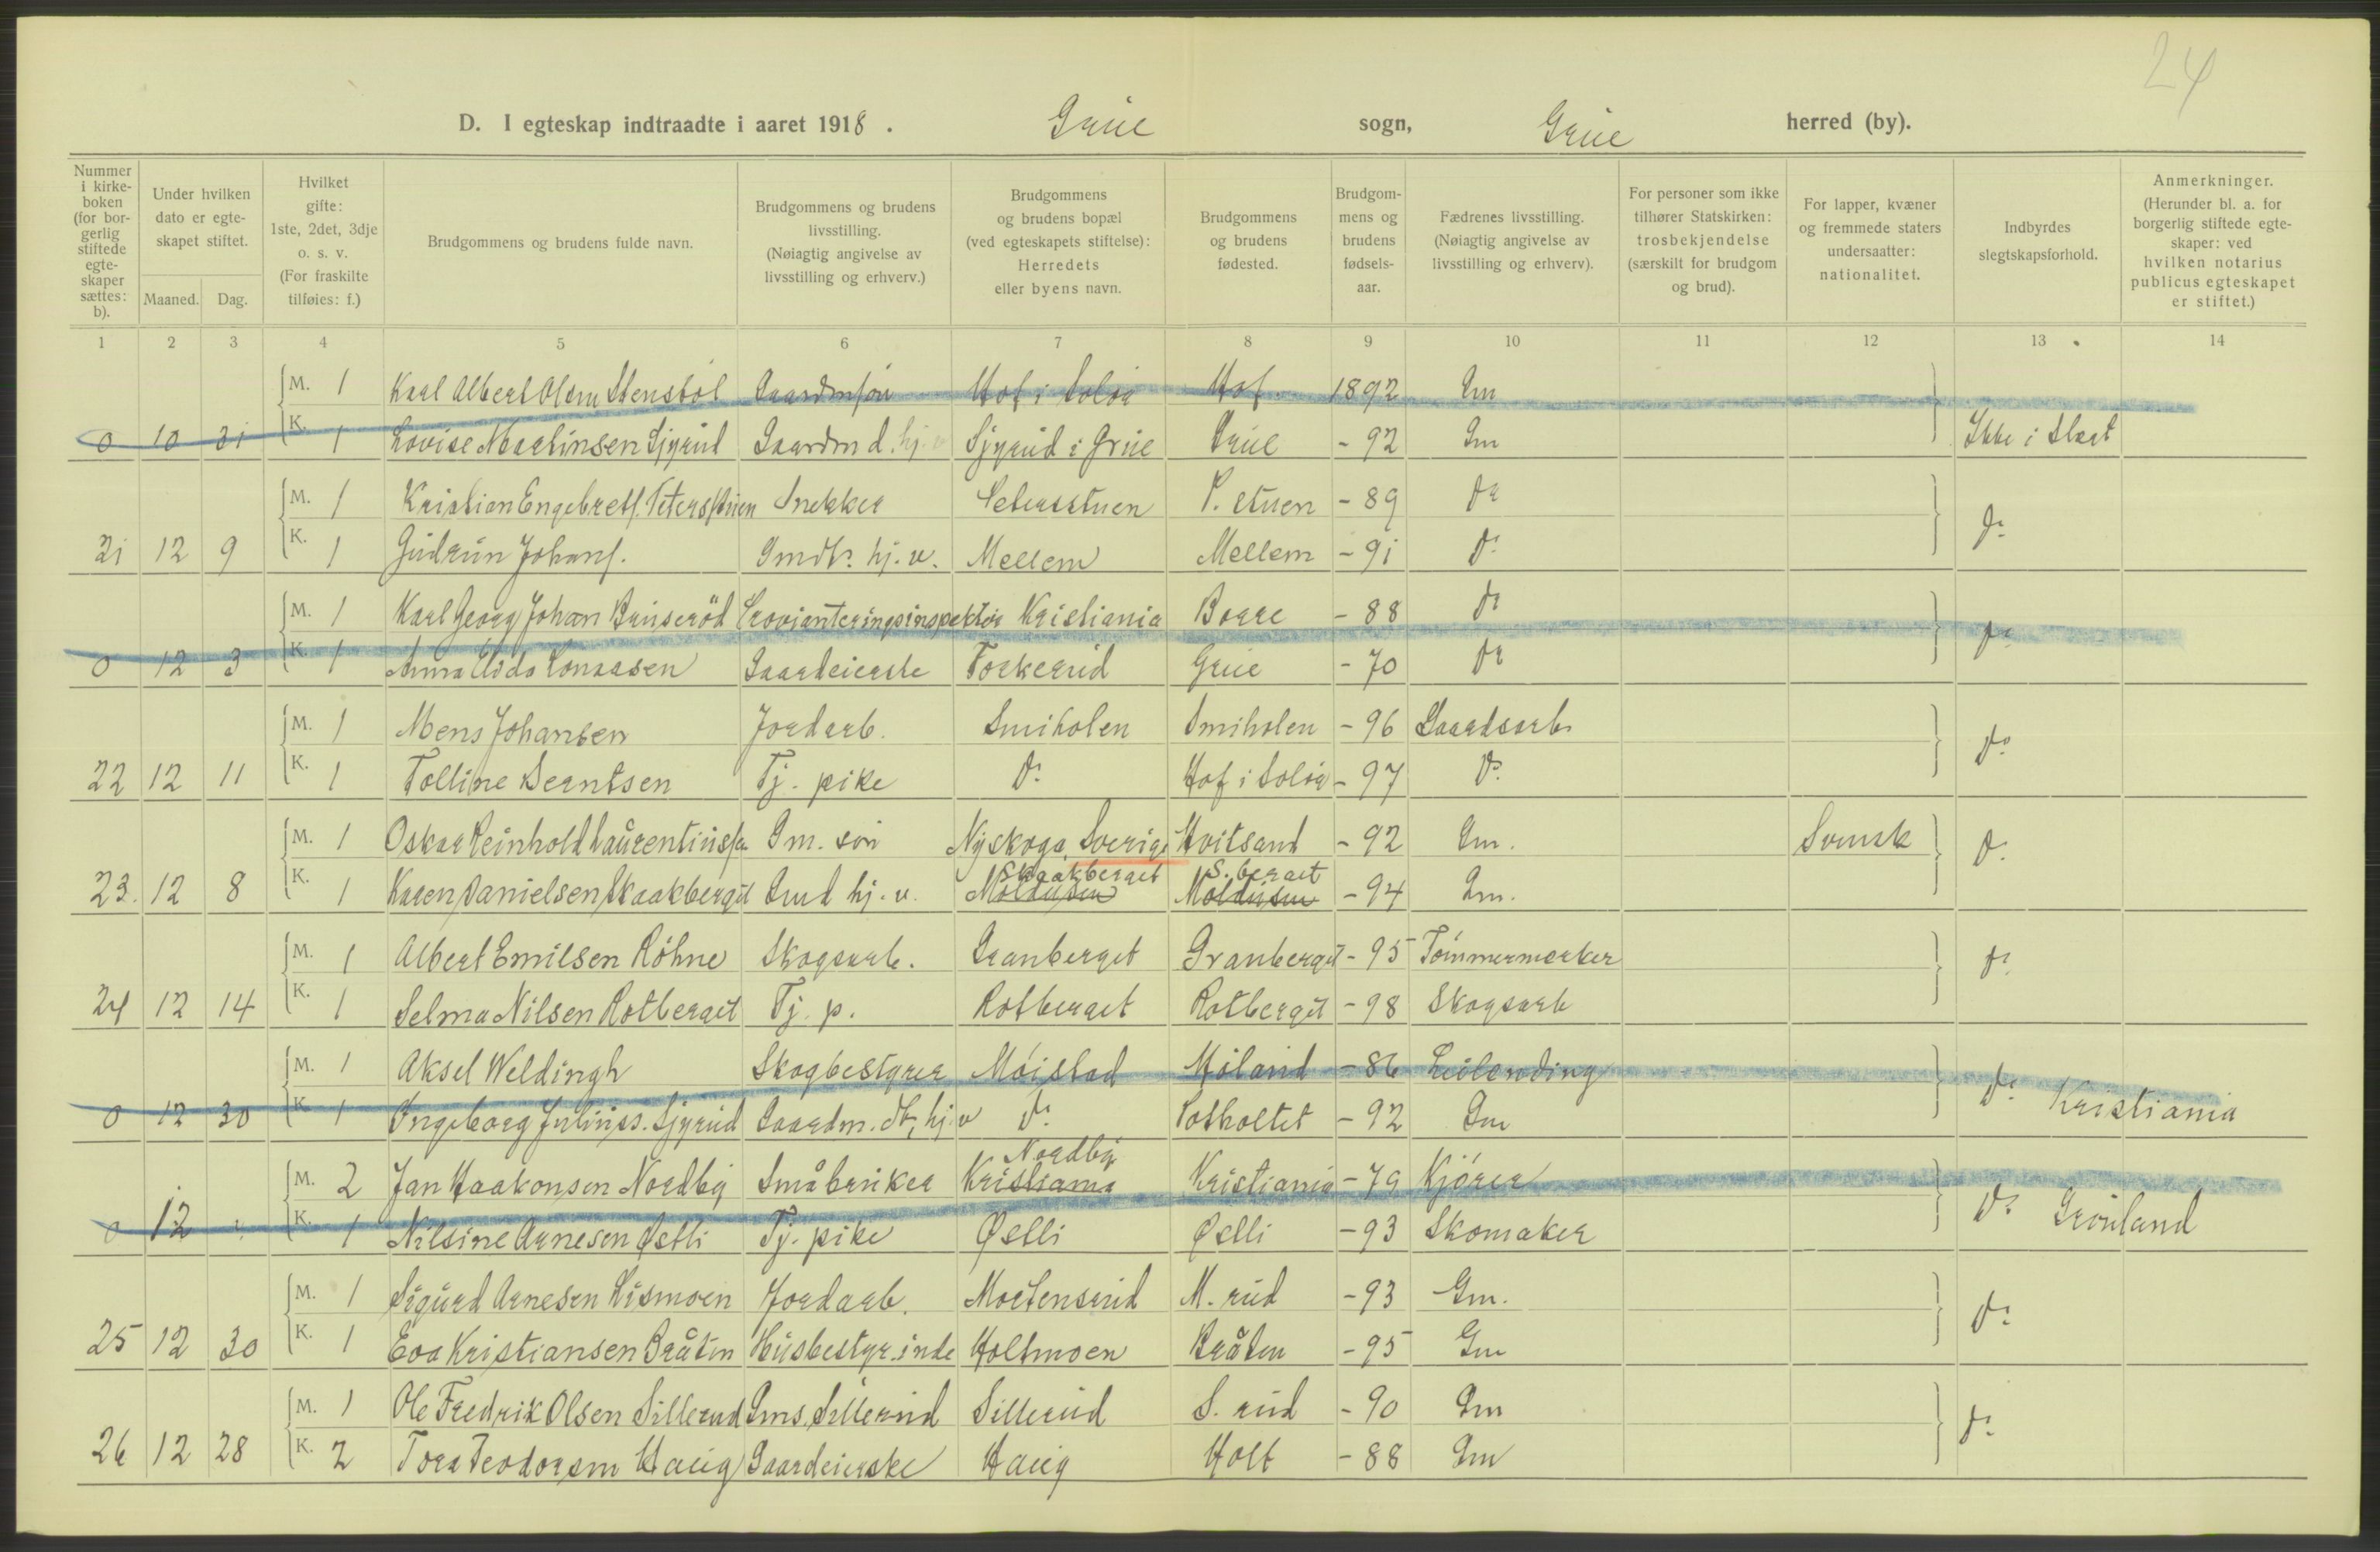 24
D. I egteskap indtraadte i aaret 1918. Grue sogn, Grue herred (by).
Nummer i kirkeboken (for borgerlig stiftede egteskaper sættes: b).
Under hvilken dato er egteskapet stiftet.
Maaned. Dag.
Hvilket gifte: 1ste, 2det, 3dje o. s. v. (For fraskilte tilføies: f.)
Brudgommens og brudens fulde navn.
Brudgommens og brudens livsstilling. (Nøiagtig angivelse av livsstilling og erhverv.)
Brudgommens og brudens bopæl (ved egteskapets stiftelse): Herredets eller byens navn.
Brudgommens og brudens fødested.
Brudgommens og brudens fødselsaar.
Fædrenes livsstilling. (Nøiagtig angivelse av livsstilling og erhverv).
For personer som ikke tilhører Statskirken: trosbekjendelse (særskilt for brudgom og brud).
For lapper, kvæner og fremmede staters undersaatter: nationalitet.
Indbyrdes slegtskapsforhold.
Anmerkninger. (Herunder bl. a. for borgerlig stiftede egteskaper: ved hvilken notarius publicus egteskapet er stiftet.)
1 2 3 4 5 6 7 8 9 10 11 12 13 14
M. 1 Karl Albert Olsen Stensböl Gaardmsön Hof i Solör Hof 1892 Gm
0 10 31 K. 1 Lovise Martinsen Sjyrud Gaardm d. hj. v Sjyrud i Grue Grue - 92 Gm Ikke i Slegt
M. 1 Kristian Engebrets. Petersstuen Snekker Petersstuen P. stuen - 89 do
21 12 9 K. 1 Gudrun Johans. Gmdtr. hj. v. Mellem Mellem - 91 do do
M. 1 Karl Georg Johan Bruseröd Provianteringsinspektör Kristiania Borre - 88 do
0 12 3 K. 1 Anna Lonaasen Gaardeierske Torkerud Grue - 70 do do
M. 1 Mens Johansen Jordarb. Smiholen Smiholen - 96 Gaardsarb.
22 12 11 K. 1 Tolline Berntsen Tj. pike do Hof i Solör - 97 do do
M. 1 Oskar Reinhold Laurentiuss. Gm. sön Nyskoga, Sverige Hvitsand - 92 Gm. Svensk
Skaakberget S. berget
23. 12 8 K. 1 Karen Danielsen Skaakberget Gmd hj. v. Moldusen Moldusen - 94 Gm. do
M. 1 Albert Emilsen Röhne Skogsarb. Granberget Granberget - 95 Tömmermerker
24 12 14 K. 1 Selma Nilsen Rotberget Tj. p. Rotberget Rotberget - 98 Skogsarb do
M. 1 Aksel Weldingh Skogbestyrer Möistad Höland - 86 Leilending
0 12 30 K. 1 Ingeborg Juliuss. Sjyrud Gaardm. dtr, hj. v do Potholtet - 92 Gm do Kristiania
Nordby
M. 2 Jan Haakonsen Nordby Småbruker Kristiania Kristiania - 79 Kjörer
0 12 K. 1 Nilsine Arnesen Østli Tj. pike Østli Østli - 93 Skomaker do Grönland
M. 1 Sigurd Arnesen Rismoen Jordarb. Mortensrud M. rud - 93 Gm.
25 12 30 K. 1 Eva Kristiansen Bråten Husbestyr.inde Holtmoen Bråten - 95 Gm do
M. 1 Ole Fredrik Olsen Sillerud Gms. Sillerud Sillerud S. rud - 90 Gm
26 12 28 K. 2 Tora Teodorsen Haug Gaardeierske Haug Holt - 88 Gm do